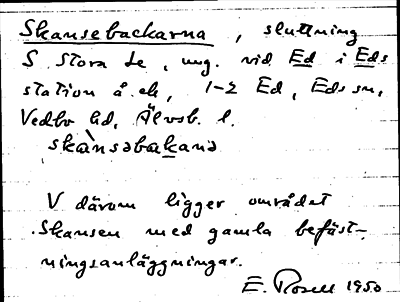 Skansebackarna, sluttning
S Stora Le, ung. vid Ed i Eds
station å. ek, 1-2 Ed, Eds sn,
Vedbo hd, Älvsb. l.
skànsəbakanə
V därom ligger området
Skansen med gamla befäst-
ningsanläggningar.
E. Rosell 1950